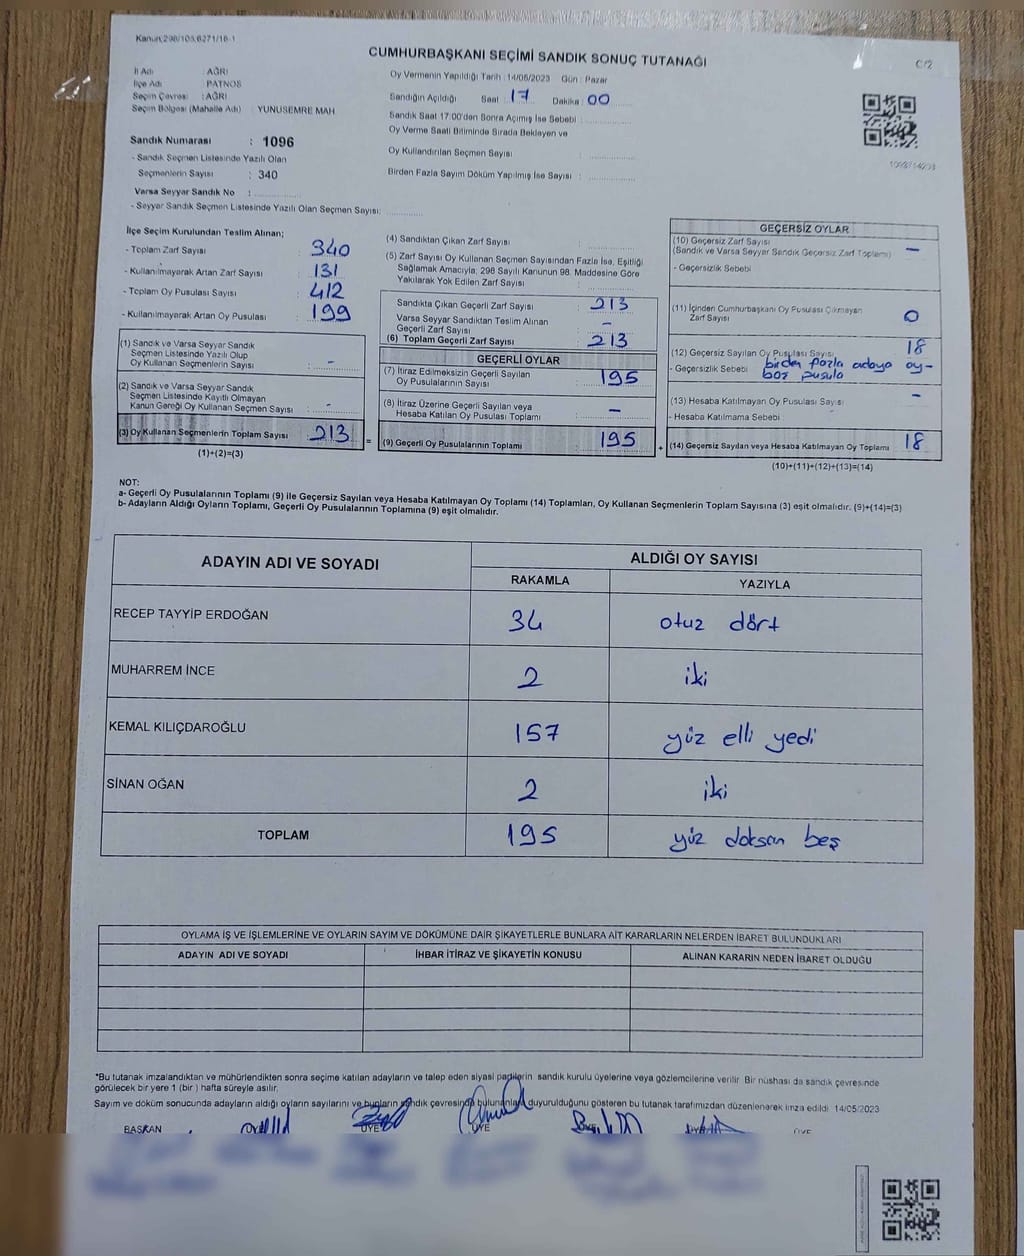 Kanun:298/105,6271/16-1
CUMHURBAŞKANI SEÇİMİ SANDIK SONUÇ TUTANAĞI
C/2
İl Adı : AĞRI
İlçe Adı : PATNOS
Seçim Çevresi : AĞRI
Seçim Bölgesi (Mahalle Adı) : YUNUSEMRE MAH.
Oy Vermenin Yapıldığı Tarih : 14/05/2023 Gün : Pazar
Sandığın Açıldığı Saat : 17 Dakika : 00
Sandık Saat 17:00'den Sonra Açımış İse Sebebi :
Oy Verme Saati Bitiminde Sırada Bekleyen ve
Oy Kullandırılan Seçmen Sayısı :
Birden Fazla Sayım Döküm Yapılmış İse Sayısı :
Sandık Numarası : 1096
- Sandık Seçmen Listesinde Yazılı Olan
Seçmenlerin Sayısı : 340
Varsa Seyyar Sandık No :
- Seyyar Sandık Seçmen Listesinde Yazılı Olan Seçmen Sayısı:
İlçe Seçim Kurulundan Teslim Alınan;
- Toplam Zarf Sayısı : 340
- Kullanılmayarak Artan Zarf Sayısı : 131
- Toplam Oy Pusulası Sayısı : 412
- Kullanılmayarak Artan Oy Pusulası : 199
(1) Sandık ve Varsa Seyyar Sandık
Seçmen Listesinde Yazılı Olup
Oy Kullanan Seçmenlerin Sayısı : -
(2) Sandık ve Varsa Seyyar Sandık
Seçmen Listesinde Kayıtlı Olmayan
Kanun Gereği Oy Kullanan Seçmen Sayısı : -
(3) Oy Kullanan Seçmenlerin Toplam Sayısı : 213
(1)+(2)=(3)
(4) Sandıktan Çıkan Zarf Sayısı :
(5) Zarf Sayısı Oy Kullanan Seçmen Sayısından Fazla İse, Eşitliği
Sağlamak Amacıyla; 298 Sayılı Kanunun 98. Maddesine Göre
Yakılarak Yok Edilen Zarf Sayısı :
Sandıkta Çıkan Geçerli Zarf Sayısı : 213
Varsa Seyyar Sandıktan Teslim Alınan
Geçerli Zarf Sayısı : -
(6) Toplam Geçerli Zarf Sayısı : 213
GEÇERLİ OYLAR
(7) İtiraz Edilmeksizin Geçerli Sayılan
Oy Pusulalarının Sayısı : 195
(8) İtiraz Üzerine Geçerli Sayılan veya
Hesaba Katılan Oy Pusulası Toplamı : -
= (9) Geçerli Oy Pusulalarının Toplamı : 195
GEÇERSİZ OYLAR
(10) Geçersiz Zarf Sayısı
(Sandık ve Varsa Seyyar Sandık Geçersiz Zarf Toplamı) -
- Geçersizlik Sebebi
(11) İçinden Cumhurbaşkanı Oy Pusulası Çıkmayan
Zarf Sayısı 0
(12) Geçersiz Sayılan Oy Pusulası Sayısı 18
- Geçersizlik Sebebi birden fazla adaya oy-
boş pusula
(13) Hesaba Katılmayan Oy Pusulası Sayısı -
- Hesaba Katılmama Sebebi
+ (14) Geçersiz Sayılan veya Hesaba Katılmayan Oy Toplamı 18
(10)+(11)+(12)+(13)=(14)
NOT:
a- Geçerli Oy Pusulalarının Toplamı (9) ile Geçersiz Sayılan veya Hesaba Katılmayan Oy Toplamı (14) Toplamları, Oy Kullanan Seçmenlerin Toplam Sayısına (3) eşit olmalıdır. (9)+(14)=(3)
b- Adayların Aldığı Oyların Toplamı, Geçerli Oy Pusulalarının Toplamına (9) eşit olmalıdır.
ADAYIN ADI VE SOYADI ALDIĞI OY SAYISI
RAKAMLA YAZIYLA
RECEP TAYYİP ERDOĞAN 34 otuz dört
MUHARREM İNCE 2 iki
KEMAL KILIÇDAROĞLU 157 yüz elli yedi
SİNAN OĞAN 2 iki
TOPLAM 195 yüz doksan beş
OYLAMA İŞ VE İŞLEMLERİNE VE OYLARIN SAYIM VE DÖKÜMÜNE DAİR ŞİKAYETLERLE BUNLARA AİT KARARLARIN NELERDEN İBARET BULUNDUKLARI
ADAYIN ADI VE SOYADI İHBAR İTİRAZ VE ŞİKAYETİN KONUSU ALINAN KARARIN NEDEN İBARET OLDUĞU
*Bu tutanak imzalandıktan ve mühürlendikten sonra seçime katılan adayların ve talep eden siyasi partilerin sandık kurulu üyelerine veya gözlemcilerine verilir. Bir nüshası da sandık çevresinde
görülecek bir yere 1 (bir) hafta süreyle asılır.
Sayım ve döküm sonucunda adayların aldığı oyların sayılarını ve bunların sandık çevresinde bulunanlara duyurulduğunu gösteren bu tutanak tarafımızdan düzenlenerek imza edildi 14/05/2023
BAŞKAN ÜYE ÜYE ÜYE ÜYE